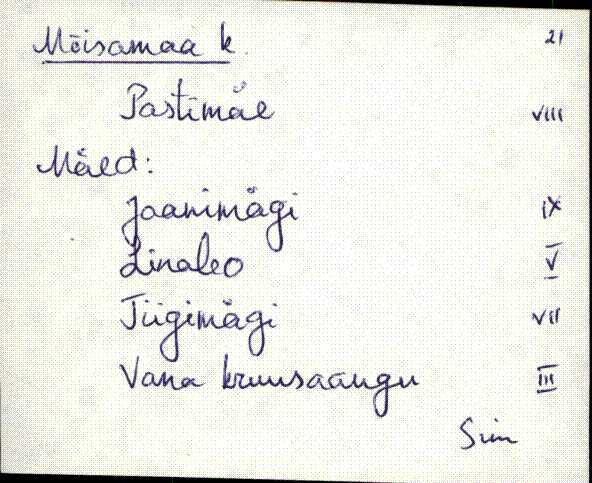 Mõisamaa k. 21
Pastimäe VIII
Mäed:
Jaanimägi IX
Linaleo V
Tiigimägi VII
Vana kruusaaugu III
Sim